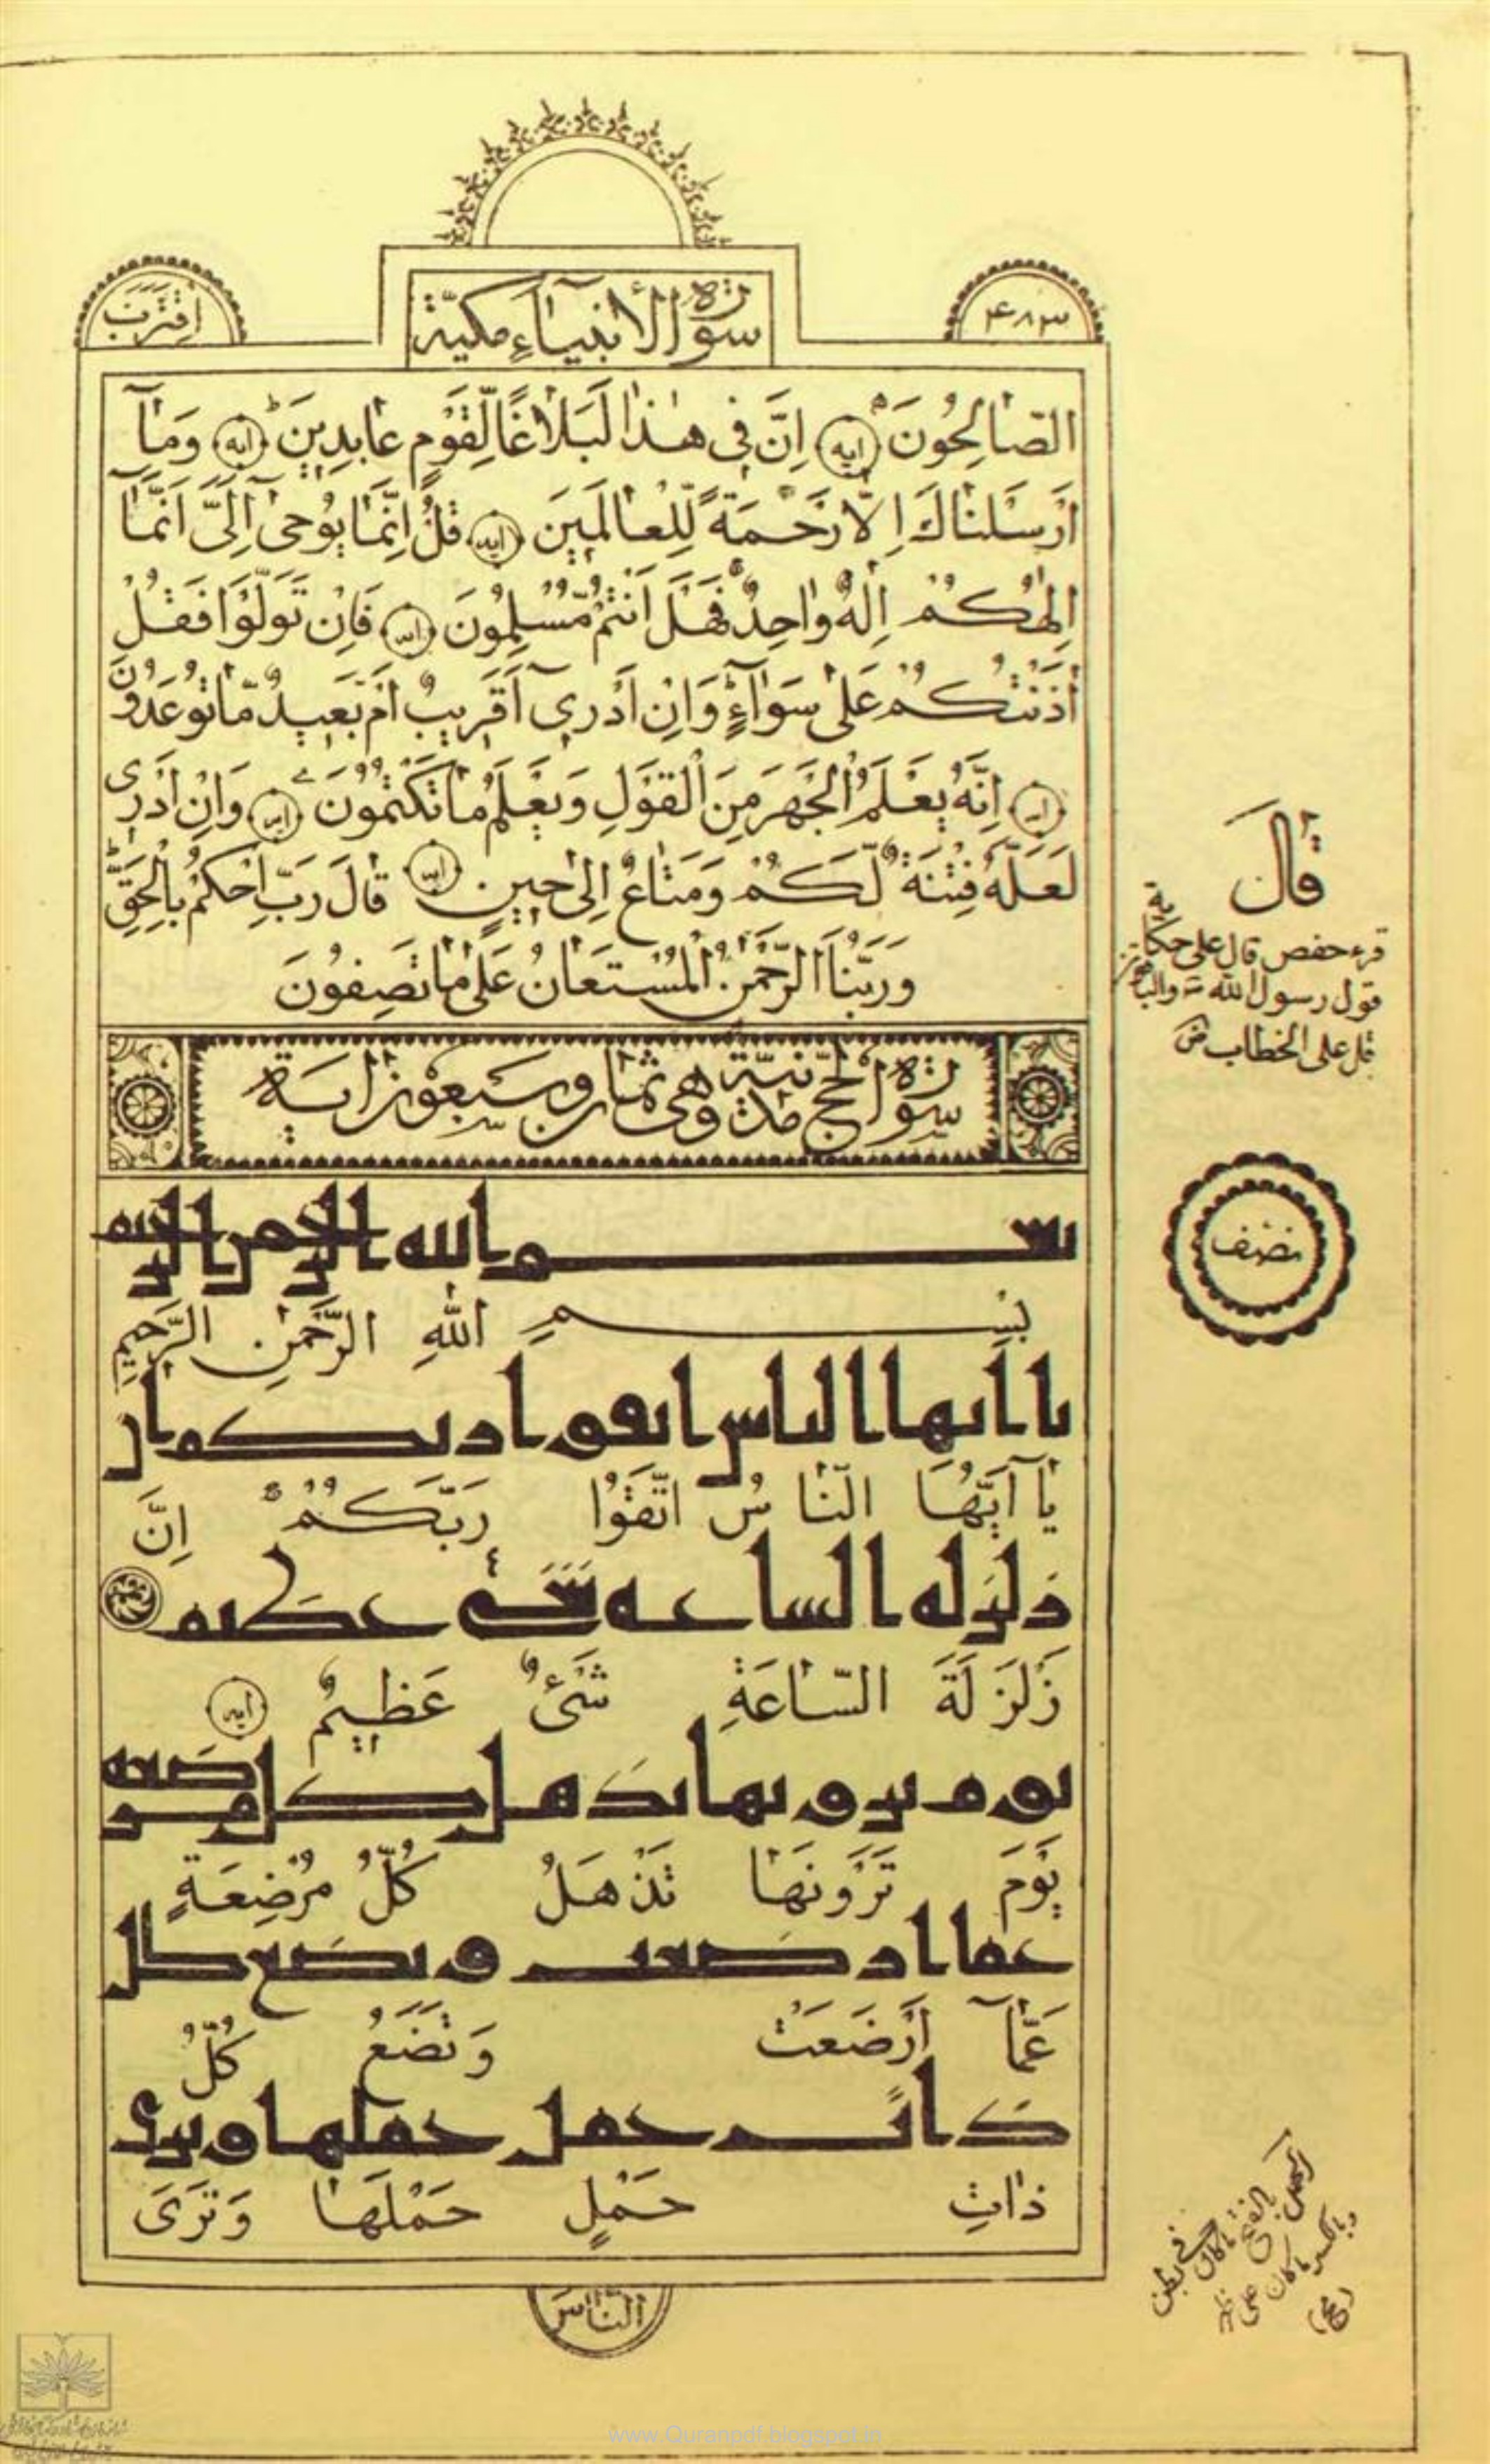 اِقْتَرَبَ
سُورَةُ الْاَنْبِيَآءِ مَكِيَّة
۴۸۳
الصَّالِحُونَ ايه اِنَّ فِى هٰذَا لَبَلَاغًا لِّقَوْمٍ عَابِدِينَ ايه وَمَآ
اَرْسَلْنَاكَ اِلَّا رَحْمَةً لِّلْعَالَمِينَ ايه قُلْ اِنَّمَا يُوحٰى اِلَىَّ اَنَّمَآ
اِلٰهُكُمْ اِلٰهٌ وَاحِدٌ فَهَلْ اَنْتُمْ مُّسْلِمُونَ ايه فَاِنْ تَوَلَّوْا فَقُلْ
اٰذَنْتُكُمْ عَلٰى سَوَآءٍ وَاِنْ اَدْرِىٓ اَقَرِيبٌ اَمْ بَعِيدٌ مَّا تُوعَدُونَ
ايه اِنَّهُ يَعْلَمُ الْجَهْرَ مِنَ الْقَوْلِ وَيَعْلَمُ مَا تَكْتُمُونَ ايه وَاِنْ اَدْرِى
لَعَلَّهُ فِتْنَةٌ لَّكُمْ وَمَتَاعٌ اِلٰى حِينٍ ايه قَالَ رَبِّ احْكُمْ بِالْحَقِّ
وَرَبُّنَا الرَّحْمٰنُ الْمُسْتَعَانُ عَلٰى مَا تَصِفُونَ
قَالَ
قرء حفص قال على حكاية
قول رسول الله والباقون
قل على الخطاب
سُورَةُ الْحَجّ مَدَنِيَّة وَهِىَ ثَمَان وَسَبْعُونَ ايَة
نصف
بسم الله الرحمن الرحيم
بِسْمِ اللّٰهِ الرَّحْمٰنِ الرَّحِيمِ
ياايها الناس اتقوا ربكم ان
يَآ اَيُّهَا النَّاسُ اتَّقُوْا رَبَّكُمْ اِنَّ
زلزلة الساعة شئ عظيم
زَلْزَلَةَ السَّاعَةِ شَىْءٌ عَظِيمٌ ايه
يوم ترونها تذهل كل مرضعة
يَوْمَ تَرَوْنَهَا تَذْهَلُ كُلُّ مُرْضِعَةٍ
عما ارضعت وتضع كل
عَمَّآ اَرْضَعَتْ وَتَضَعُ كُلُّ
ذات حمل حملها وترى
ذَاتِ حَمْلٍ حَمْلَهَا وَتَرَى
الحمل بالفتح ما كان فى بطن
وبالكسر ما كان على ظهر
النَّاسَ
www.Quranpdf.blogspot.in